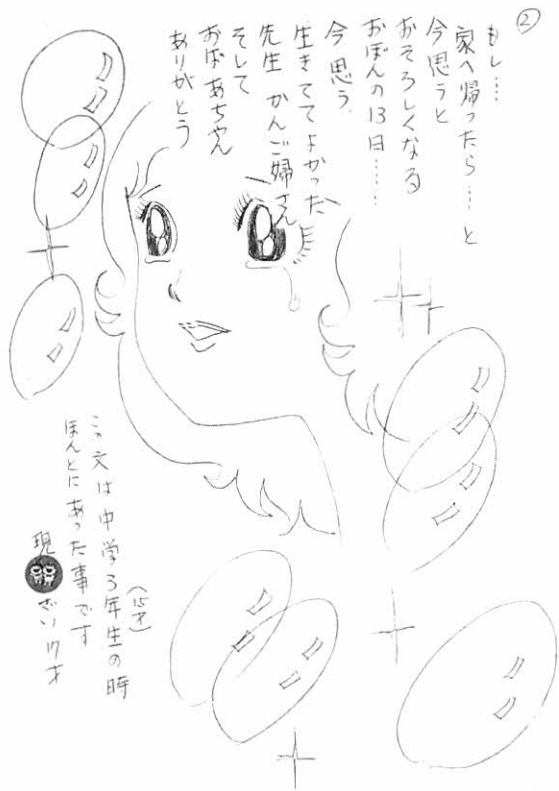 ②
もし……
家へ帰ったら……と
今思うと
おそろしくなる
おぼんの13日……
今思う
生きててよかったヘ
先生 かんご婦さん
そして
おばあちゃん
ありがとう
この文は中学3年生の時
(15才)
ほんとにあった事です
現ざい17才